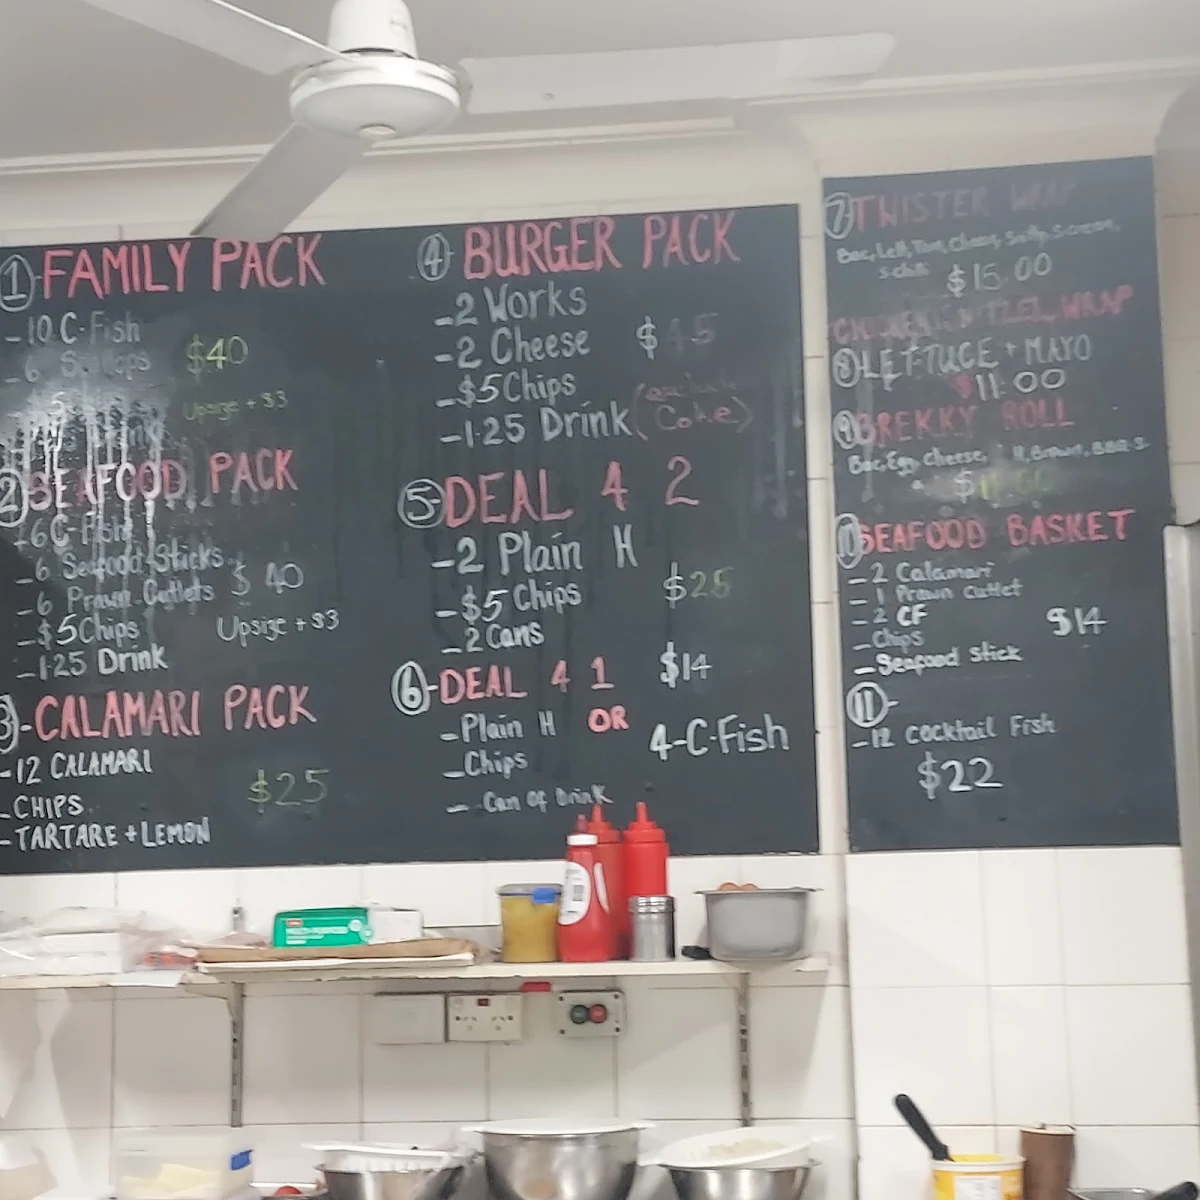 1 FAMILY PACK
-10 C-Fish
-6
$40
Upsize + $3
2 SEAFOOD PACK
-6 C-Fish
-6 Seafood Sticks
-6 Prawn Cutlets
$40
-$5 Chips
Upsize + $3
-1.25 Drink
3-CALAMARI PACK
-12 CALAMARI
$25
-CHIPS
-TARTARE + LEMON
4 BURGER PACK
-2 Works
-2 Cheese
-$5 Chips
-1.25 Drink
Coke)
5-DEAL 4 2
-2 Plain H
-$5 Chips
$25
-2 Cans
6-DEAL 4 1
$14
-Plain H OR 4-C-Fish
-Chips
- Can of Drink
7 TWISTER WRAP
$15.00
WRAP
8 LETTUCE + MAYO
$11.00
9 BREKKY ROLL
Bac, Egg, Cheese,
10 SEAFOOD BASKET
-2 Calamari
-1 Prawn cutlet
-2 CF
$14
-Chips
-Seafood Stick
11-
-12 Cocktail Fish
$22